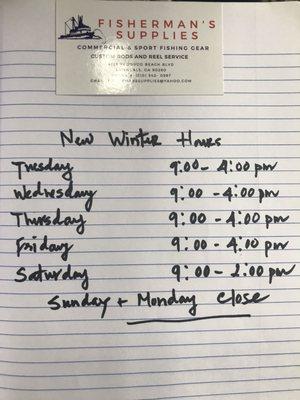 FISHERMAN'S
SUPPLIES
COMMERCIAL & SPORT FISHING GEAR
CUSTOM RODS AND REEL SERVICE
BEACH BLVD
CA 90260
New Winter Hours
Tuesday 9:00 - 4:00 pm
Wednesday 9:00 - 4:00 pm
Thursday 9:00 - 4:00 pm
Friday 9:00 - 4:00 pm
Saturday 9:00 - 2:00 pm
Sunday + Monday close